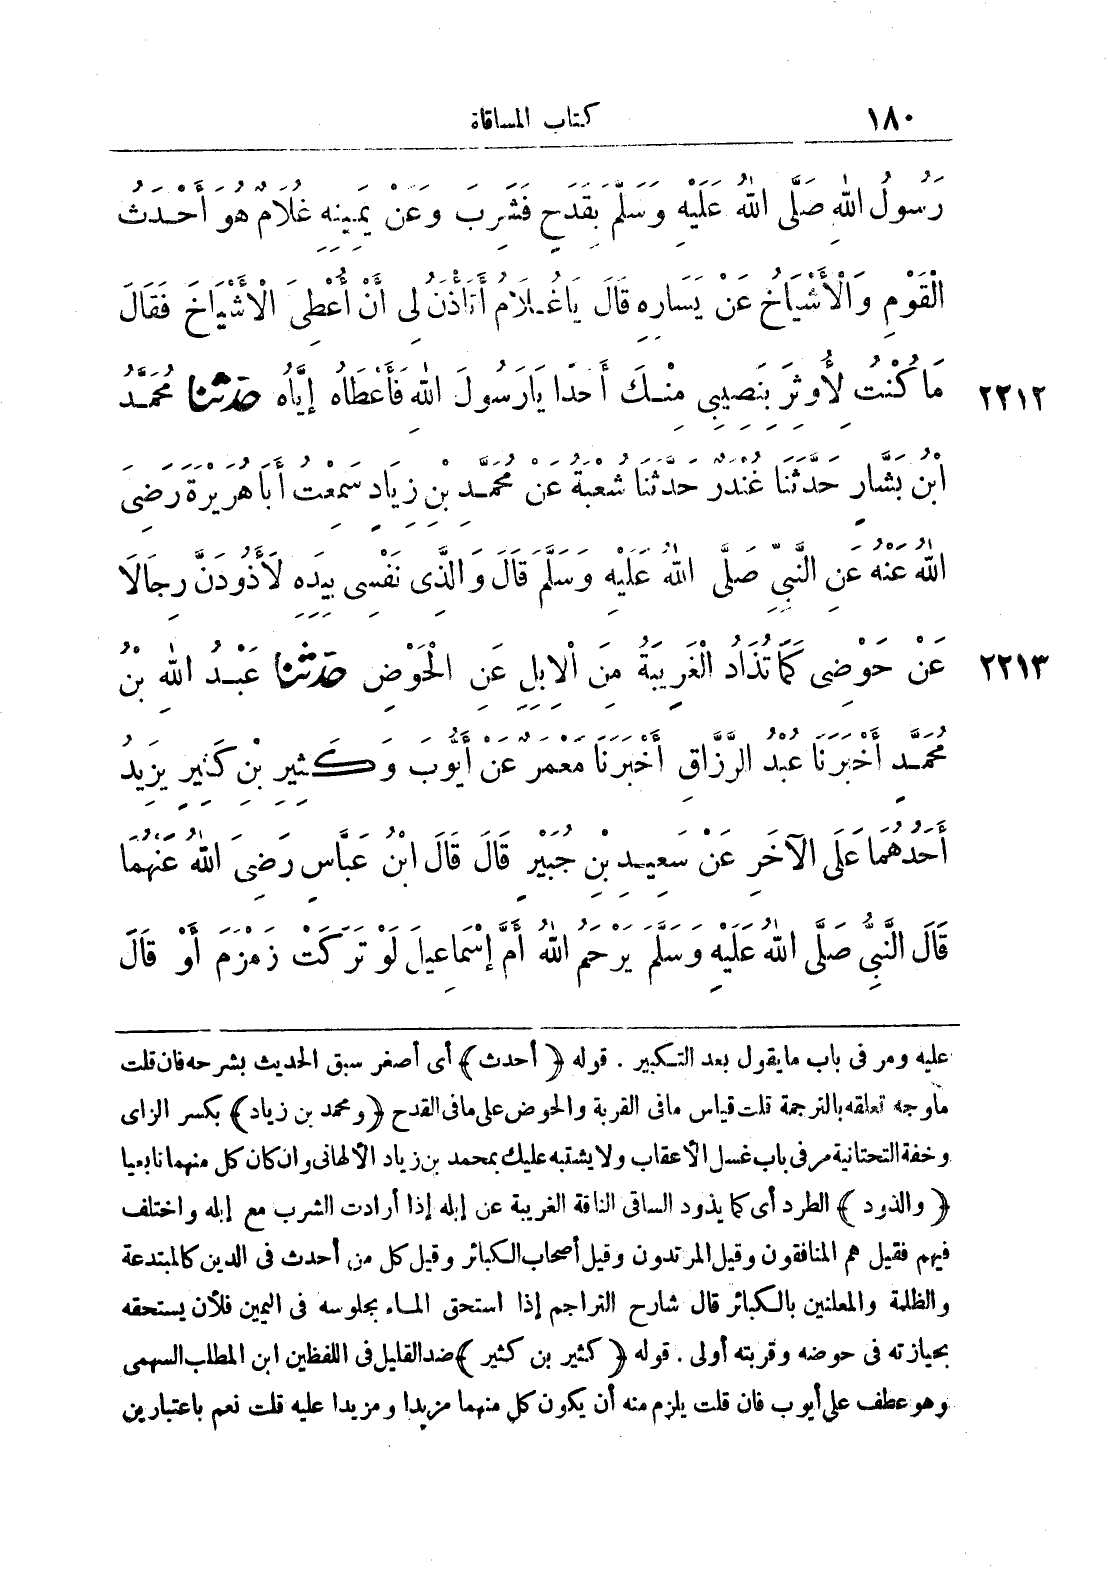 ١٨٠ كتاب المساقاة
رَسُولُ اللهِ صَلَّى اللهُ عَلَيْهِ وَسَلَّمَ بِقَدَحٍ فَشَرِبَ وَعَنْ يَمِينِهِ غُلَامٌ هُوَ أَحْدَثُ
الْقَوْمِ وَالْأَشْيَاخُ عَنْ يَسَارِهِ قَالَ يَاغُلَامُ أَتَأْذَنُ لِى أَنْ أُعْطِىَ الْأَشْيَاخَ فَقَالَ
٢٢١٢ مَا كُنْتُ لِأُوثِرَ بِنَصِيبِى مِنْكَ أَحَدًا يَارَسُولَ اللهِ فَأَعْطَاهُ إِيَّاهُ حَدَّثَنَا مُحَمَّدُ
ابْنُ بَشَّارٍ حَدَّثَنَا غُنْدَرٌ حَدَّثَنَا شُعْبَةُ عَنْ مُحَمَّدِ بْنِ زِيَادٍ سَمِعْتُ أَبَا هُرَيْرَةَ رَضِىَ
اللهُ عَنْهُ عَنِ النَّبِيِّ صَلَّى اللهُ عَلَيْهِ وَسَلَّمَ قَالَ وَالَّذِى نَفْسِى بِيَدِهِ لَأَذُودَنَّ رِجَالًا
٢٢١٣ عَنْ حَوْضِى كَمَا تُذَادُ الْغَرِيبَةُ مِنَ الْإِبِلِ عَنِ الْحَوْضِ حَدَّثَنَا عَبْدُ اللهِ بْنُ
مُحَمَّدٍ أَخْبَرَنَا عَبْدُ الرَّزَّاقِ أَخْبَرَنَا مَعْمَرٌ عَنْ أَيُّوبَ وَكَثِيرِ بْنِ كَثِيرٍ يَزِيدُ
أَحَدُهُمَا عَلَى الْآخَرِ عَنْ سَعِيدِ بْنِ جُبَيْرٍ قَالَ قَالَ ابْنُ عَبَّاسٍ رَضِىَ اللهُ عَنْهُمَا
قَالَ النَّبِىُّ صَلَّى اللهُ عَلَيْهِ وَسَلَّمَ يَرْحَمُ اللهُ أُمَّ إِسْمَاعِيلَ لَوْ تَرَكَتْ زَمْزَمَ أَوْ قَالَ
عليه ومر فى باب ما يقول بعد التكبير . قوله ﴿ أحدث ﴾ أى أصغر سبق الحديث بشرحه فان قلت
ماوجه تعلقه بالترجمة قلت قياس مافى القربة والحوض على مافى القدح ﴿ ومحمد بن زياد ﴾ بكسر الزاى
وخفة التحتانية مر فى باب غسل الأعقاب ولا يشتبه عليك بمحمد بن زياد الألهانى وان كان كل منهما تابعيا
﴿ والذود ﴾ الطرد أى كما يذود الساقى الناقة الغريبة عن إبله إذا أرادت الشرب مع إبله واختلف
فيهم فقيل هم المنافقون وقيل المرتدون وقيل أصحاب الكبائر وقيل كل من أحدث فى الدين كالمبتدعة
والظلمة والمعلنين بالكبائر قال شارح التراجم إذا استحق الماء بجلوسه فى اليمين فلأن يستحقه
بحيازته فى حوضه وقربته أولى . قوله ﴿ كثير بن كثير ﴾ ضد القليل فى اللفظين ابن المطلب السهمى
وهو عطف على أيوب فان قلت يلزم منه أن يكون كل منهما مزيدا ومزيدا عليه قلت نعم باعتبارين